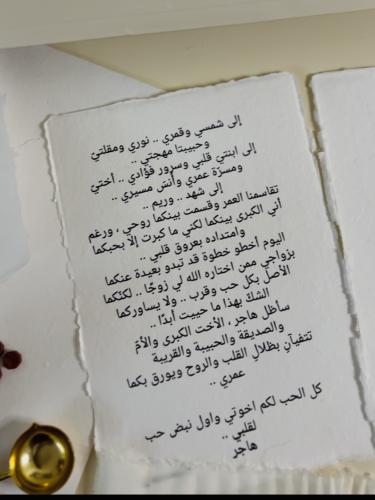 إلى شمسي وقمري .. نوري ومقلتيّ
وحبيبتا مهجتي ..
إلى ابنتيّ قلبي وسرور فؤادي .. أختيّ
ومسرّة عمري وأنسَ مسيري ..
إلى شهد .. وريم ..
تقاسمنا العمر وقسمت بينكما روحي ، ورغم
أني الكبرى بينكما لكني ما كبرت إلا بحبكما
وامتداده بعروق قلبي ..
اليوم أخطو خطوة قد تبدو بعيدة عنكما
بزواجي ممن اختاره الله لي زوجًا .. لكنّكما
الأصل بكل حب وقرب .. ولا يساوركما
الشكّ بهذا ما حييت أبدًا ..
سأظل هاجر ، الأخت الكبرى والأمّ
والصديقة والحبيبة والقريبة
تتفيآنِ بظلالِ القلب والروح ويورق بكما
عمري ..
كل الحب لكم اخوتي واول نبض حب
لقلبي ..
هاجر